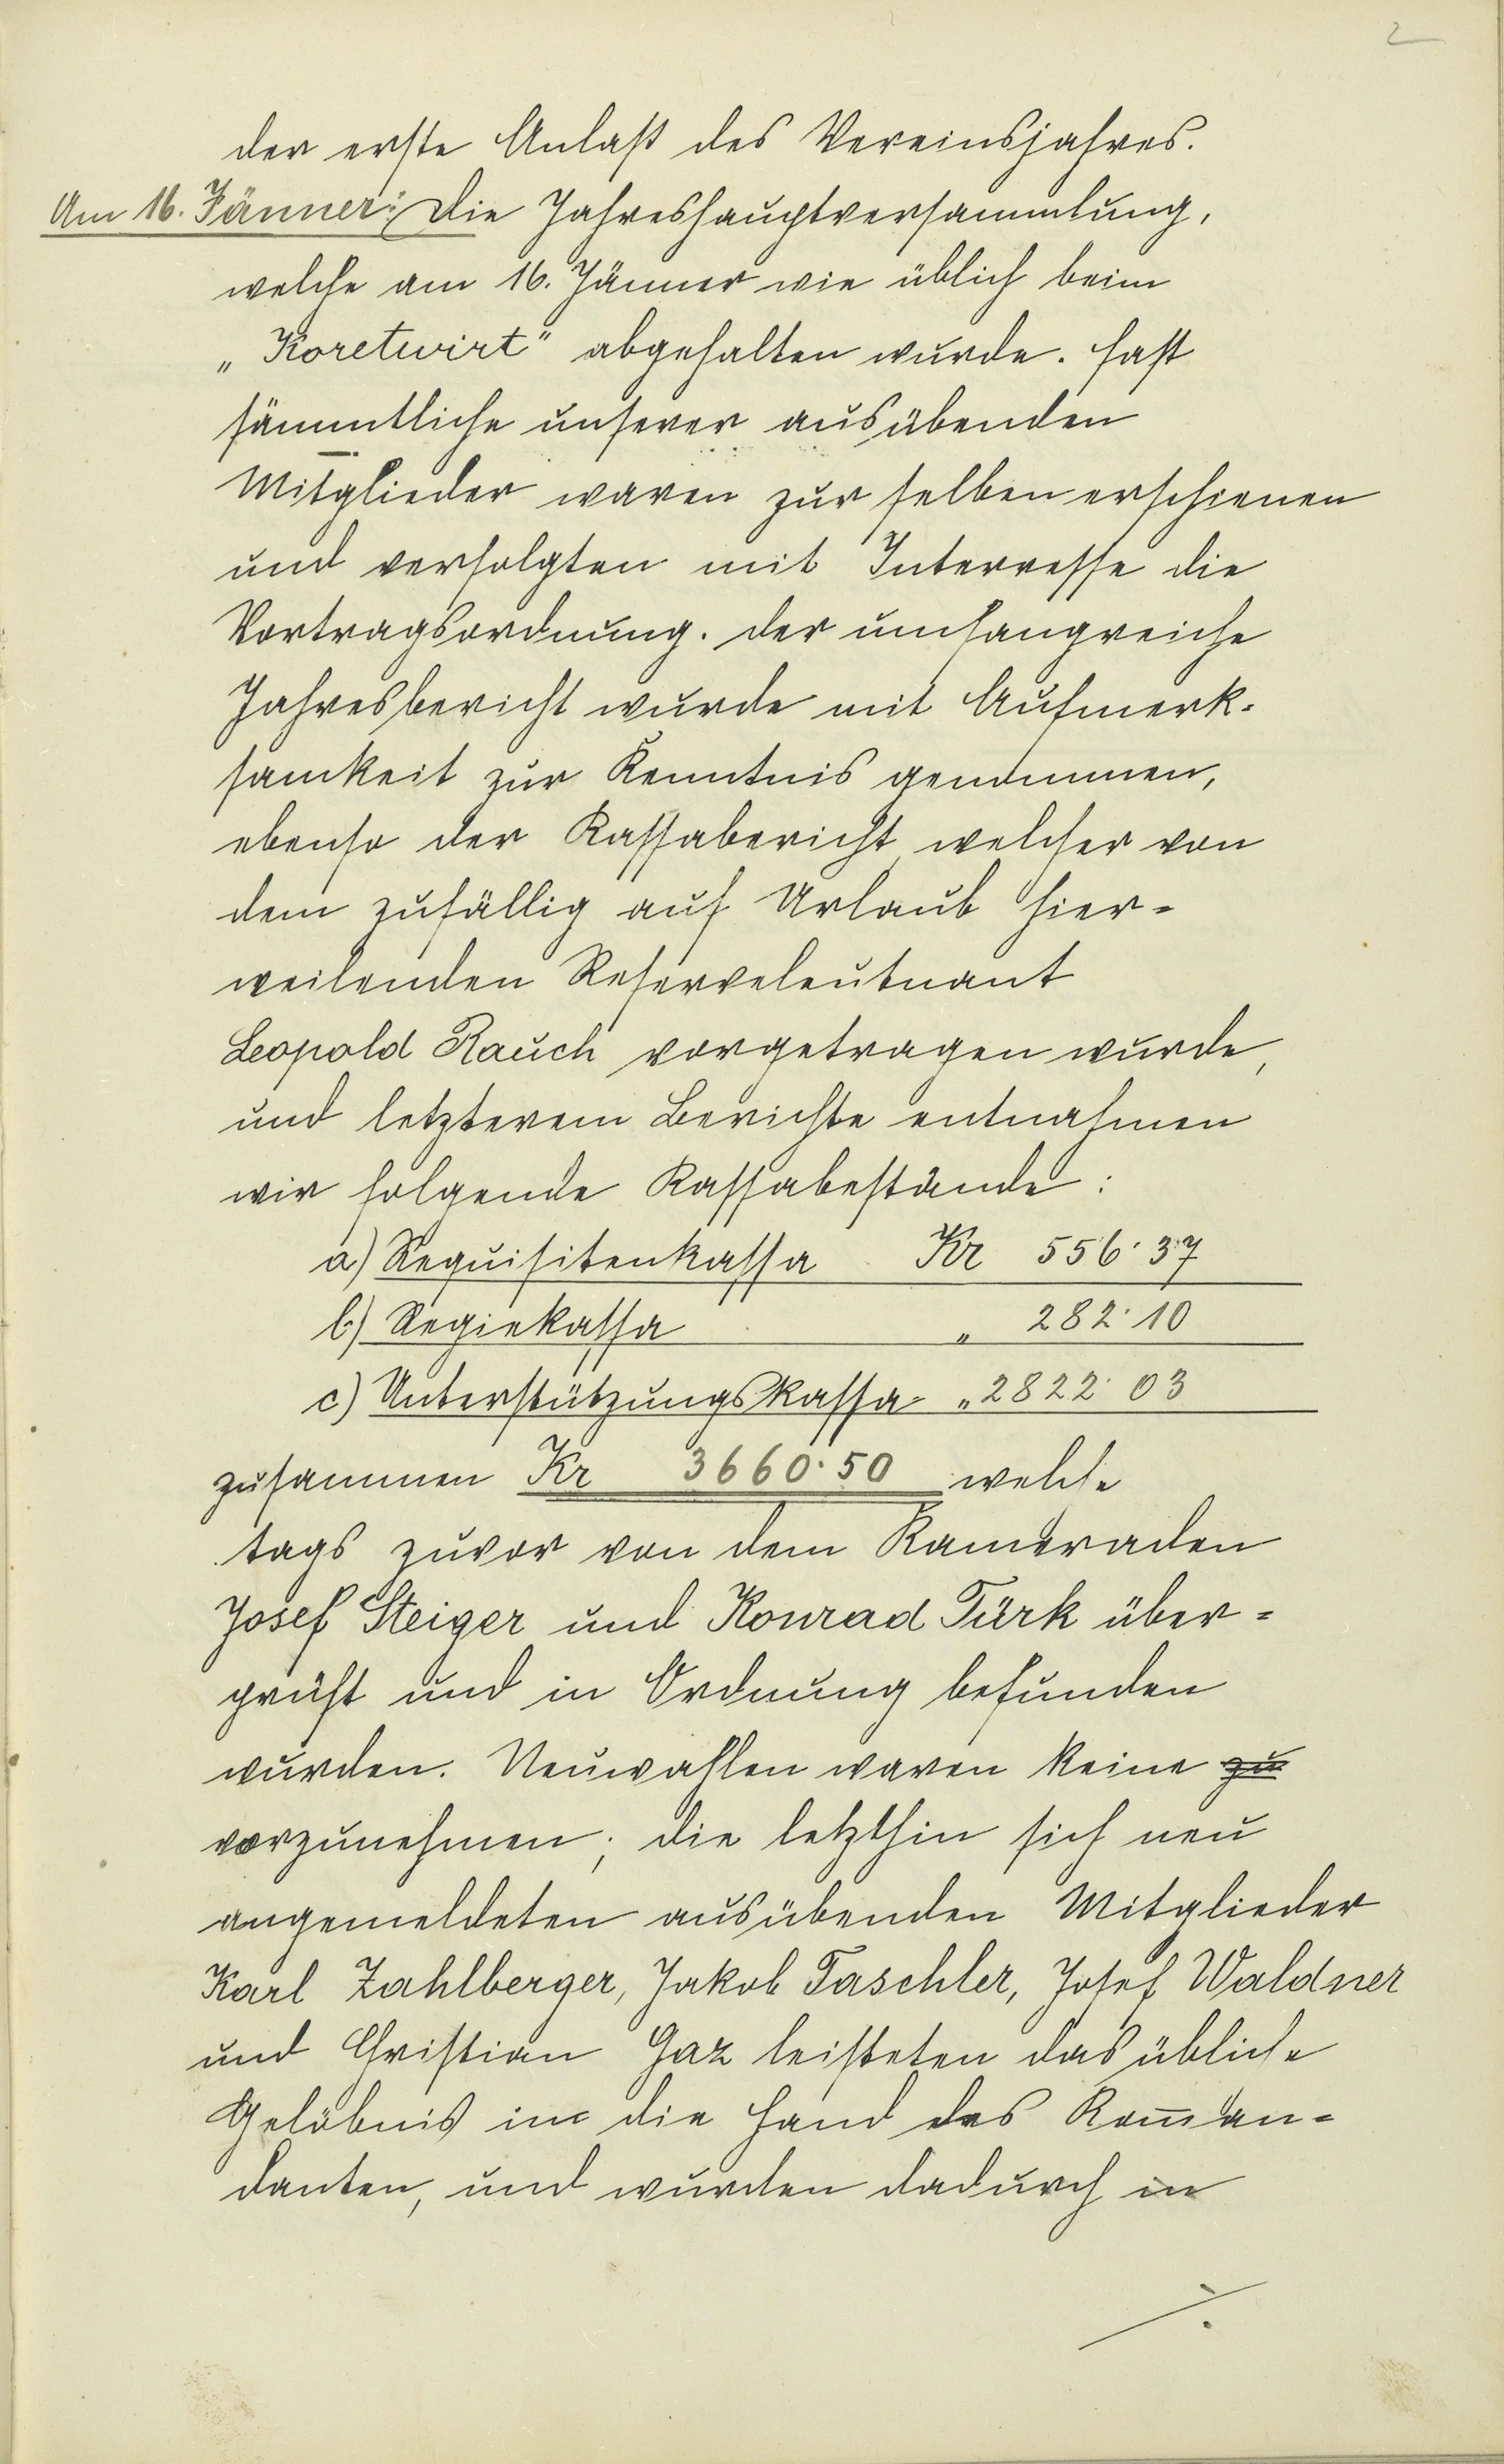 2
der erste Anlaß des Vereinsjahres.
Am 16. Jänner: Die Jahreshauptversammlung,
welche am 16. Jänner wie üblich beim
„Koretwirt" abgehalten wurde. Fast
sämmtliche unserer ausübenden
Mitglieder waren zur selben erschienen
und verfolgten mit Interresse die
Vortragsordnung. Der umfangreiche
Jahresbericht wurde mit Aufmerk-
samkeit zur Kenntnis genommen,
ebenso der Kassabericht welcher von
dem zufällig auf Urlaub hier-
weilenden Reserveleutnant
Leopold Rauch vorgetragen wurde,
und letzterem Berichte entnahmen
wir folgende Kassabestände:
a) Requisitenkassa Kr 556·37
b) Regiekassa „ 282·10
c) Unterstützungskassa „ 2822·03
zusammen Kr 3660·50 welche
tags zuvor von dem Kameraden
Josef Steiger und Konrad Türk über-
prüft und in Ordnung befunden
wurden. Neuwahlen waren keine zu
vorzunehmen; die letzthin sich neu
angemeldeten ausübenden Mitglieder
Karl Zahlberger, Jakob Taschler, Josef Waldner
und Christian Gaz leisteten das übliche
Gelöbnis in die Hand des Kom̅an-
danten, und wurden dadurch in
./.